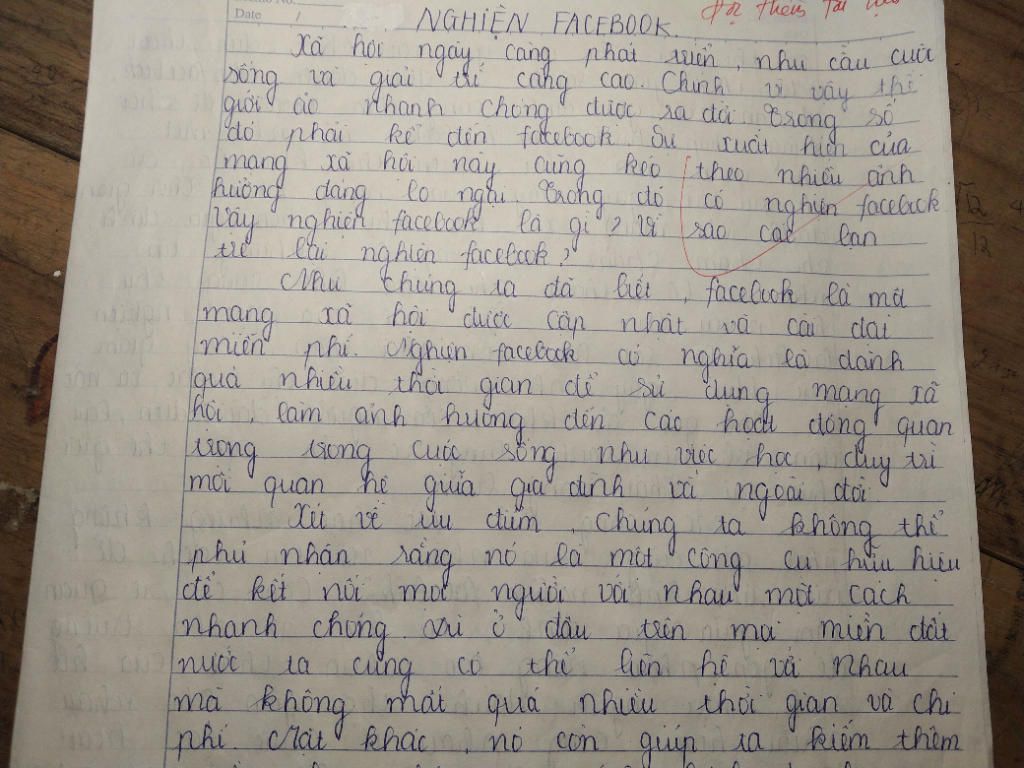 Date
NGHIỆN FACEBOOK.
Xã hội ngày càng phát triển, nhu cầu cuộc
sống và giải trí càng cao. Chính vì vậy thế
giới ảo nhanh chóng được ra đời trong số
đó phải kể đến facebook. Sự xuất hiện của
mạng xã hội này cũng kéo theo nhiều ảnh
hưởng đáng lo ngại. Trong đó có nghiện facebook
Vậy nghiện facebook là gì? Vì sao các bạn
trẻ lại nghiện facebook?
Như chúng ta đã biết, facebook là một
mạng xã hội được cập nhật và cài đặt
miễn phí. Nghiện facebook có nghĩa là dành
quá nhiều thời gian để sử dụng mạng xã
hội, làm ảnh hưởng đến các hoạt động quan
trọng trong cuộc sống như việc học, duy trì
mối quan hệ giữa gia đình và ngoài đời
Xét về ưu điểm, chúng ta không thể
phủ nhận rằng nó là một công cụ hữu hiệu
để kết nối mọi người với nhau một cách
nhanh chóng. Dù ở đâu trên mọi miền đất
nước ta cũng có thể liên hệ và nhau
mà không mất quá nhiều thời gian và chi
phí. Mặt khác, nó còn giúp ta kiếm thêm